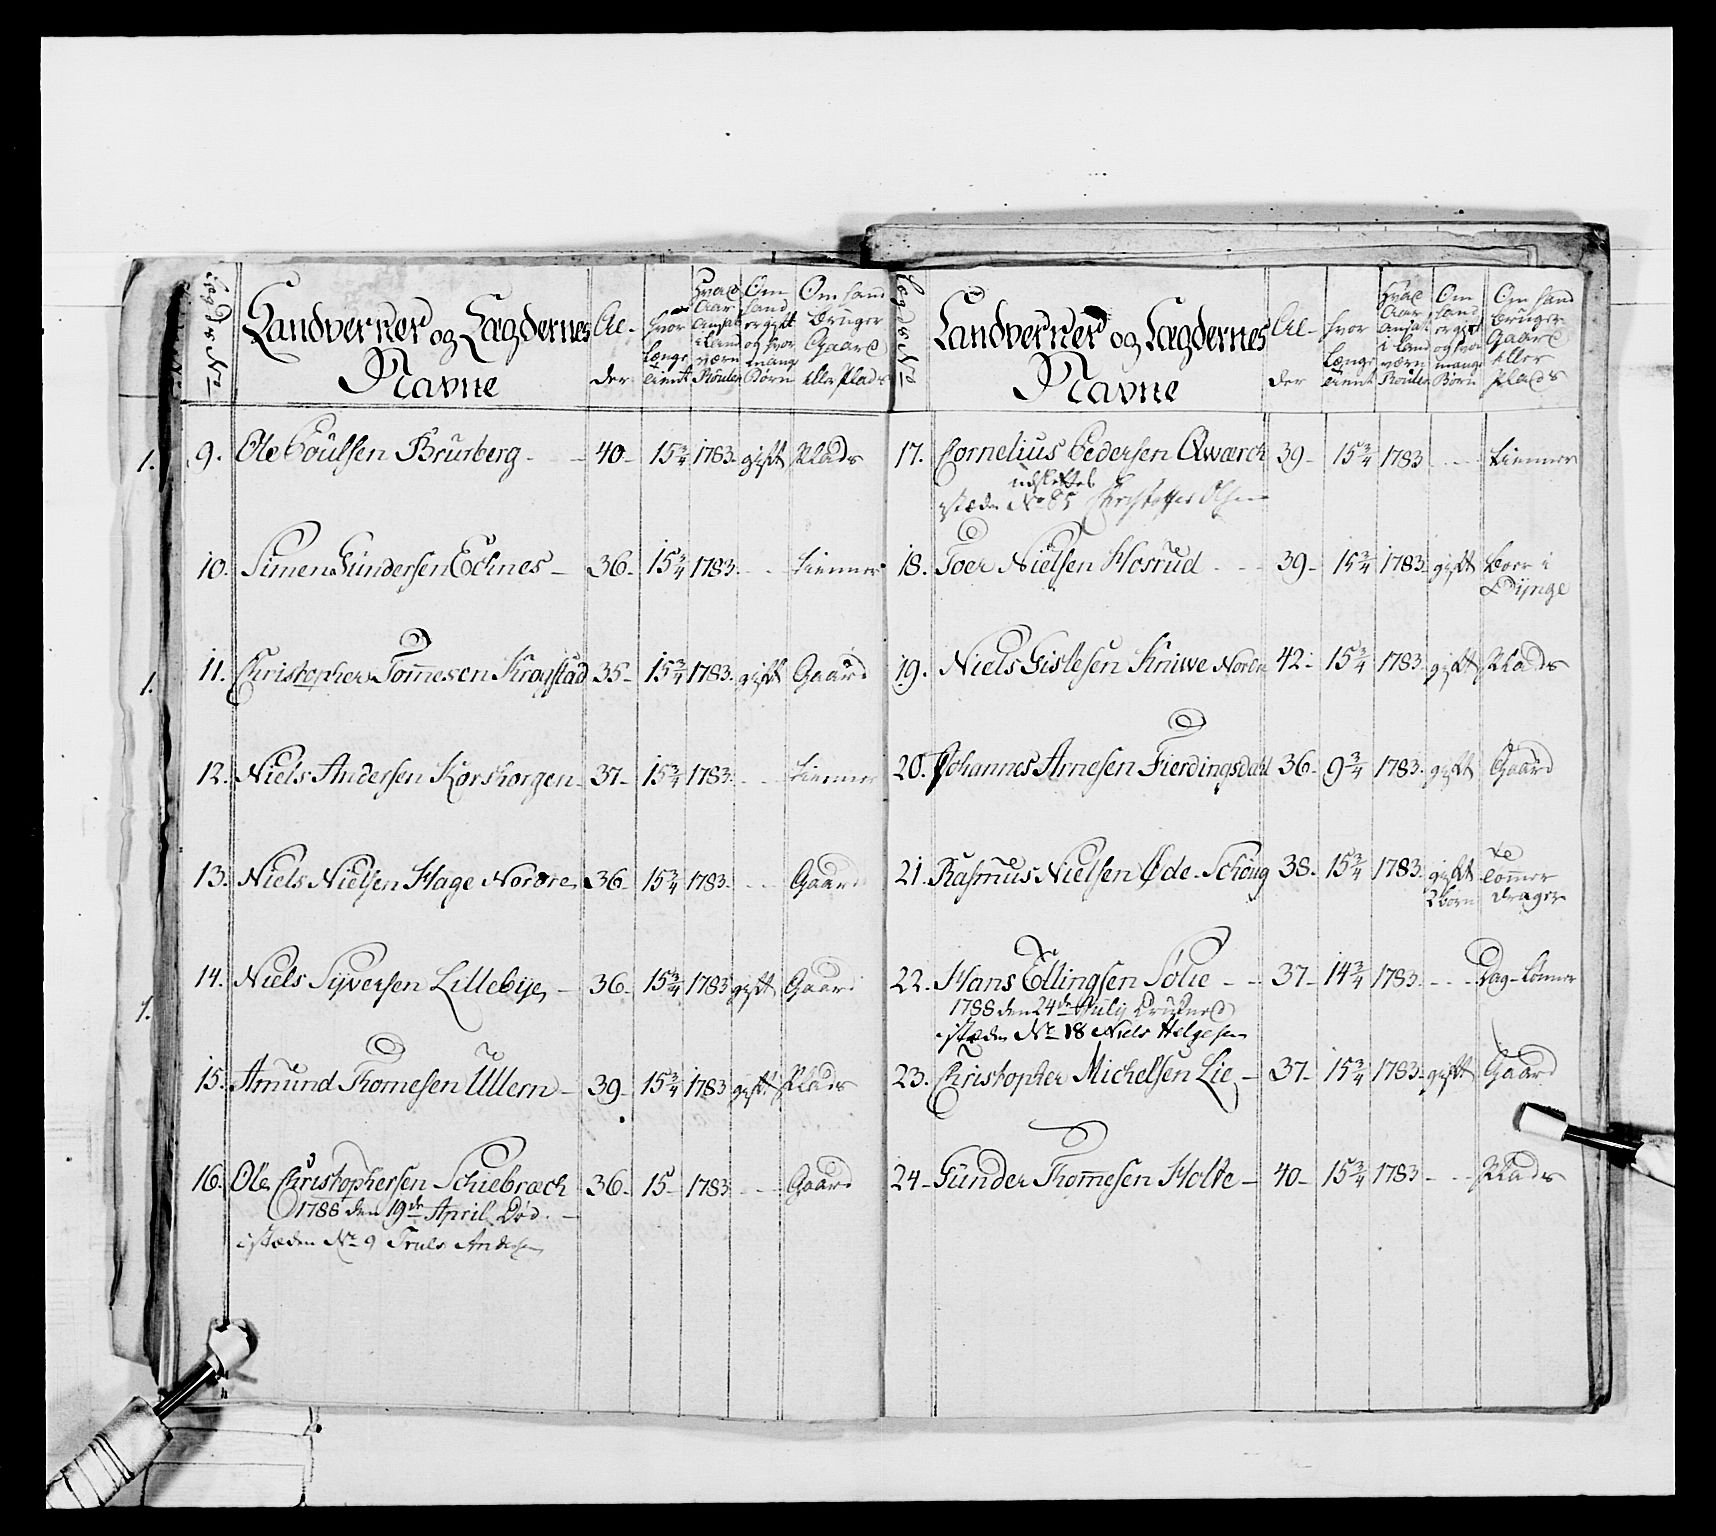 Lægds No
Landverner og Lægdernes Navne
Al-der
hvor længe tient
Hvad Aar Ansat i Land værn Roullen
Om hand er gift og hvor mang Børn
Om hand Bruger Gaard eller Plads
9. Ole Poulsen Brurberg - 40- 15 3/4 1783. gift Plads
10. Simen Gundersen Echnes - 36- 15 3/4 1783. - - tienner
11. Christopher Tommesen Krogstad 35- 15 3/4 1783. gift Gaard
12. Niels Andersen Korshorgen 37- 15 3/4 1783. - - tienner
13. Niels Nielsen Hage Nordre 36- 15 3/4 1783. - - Gaard
14. Niels Syversen Lillebye - 36- 15 3/4 1783 gift Gaard
15. Amund Thomesen Ullern - 39- 15 3/4 1783 gift Plads
16. Ole Christophersen Schiebræch 36- 15- 1783 - - Gaard
1788 den 19de April Død.
i stæden No 9 Truls Andersen
Lægds No
Landverner og Lægdernes Navne
Al-der
hvor længe tient
Hvad Aar Ansat i Land værn Roullen
Om hand er gift og hvor mange Børn
Om hand Bruger Gaard eller Plads
17. Cornelius Pedersen Qwærch 39- 15 3/4 1783 - - tienner
udslettet
i stæden No 85 Christoffer Olsen
18. Toer Nielsen Hosrud - - 39- 15 3/4 1783. gift boer i Dynge
19. Niels Gislesen Kniwe Nordre 42- 15 3/4 1783. gift Plads
20. Johannes Arnesen Fierdingsdahl 36- 9 3/4 1783. gift Gaard
21. Rasmus Nielsen Øde-Schoug 38- 15 3/4 1783. gift 2 børn Tømmer drager
22. Hans Ellingsen Solie - - 37- 14 3/4 1783. - - Dag-Lønner
1788 den 24de July
i stæden No 18 Niels Helgesen
23. Christopher Michelsen Lie - 37- 15 3/4 1783. gift Gaard
24- Gunder Thomesen Holte - 40- 15 3/4 1783 - - Plads
1.
1.
1.